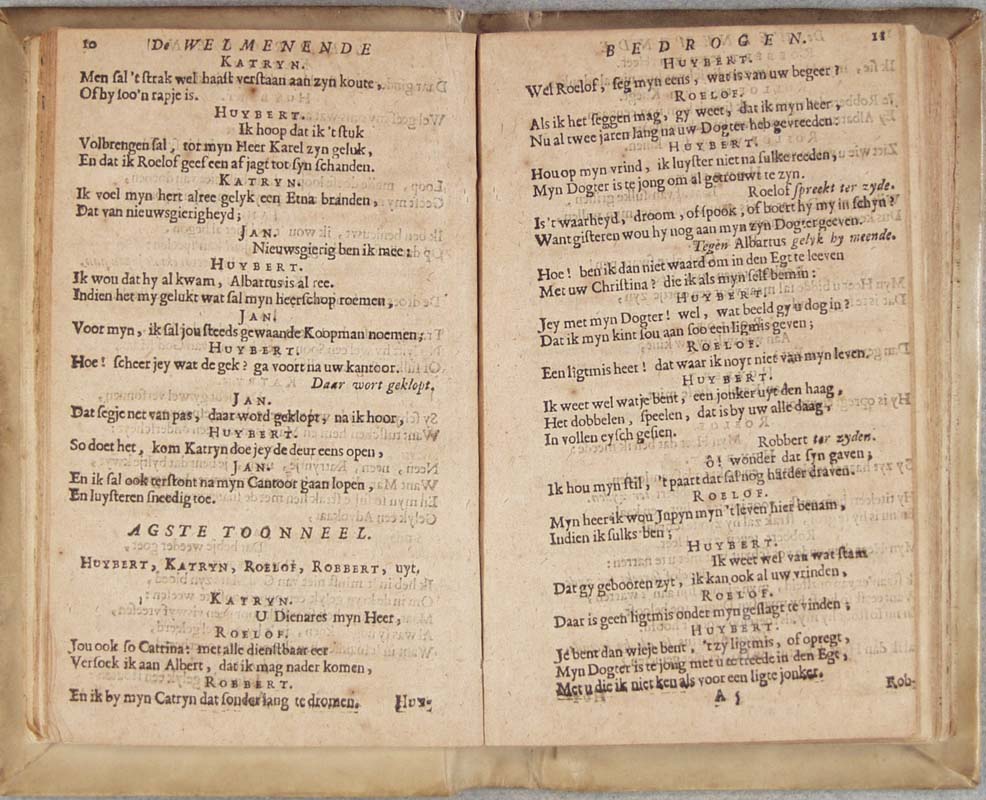 10 De WELMENENDE
KATRYN.
Men sal 't strak wel haast verstaan aan zyn koute,
Of hy soo'n rapje is.
HUYBERT.
Ik hoop dat ik 't stuk
Volbrengen sal, tot myn Heer Karel zyn geluk,
En dat ik Roelof geef een af jagt tot syn schanden.
KATRYN.
Ik voel myn hert alree gelyk een Etna branden,
Dat van nieuwsgierigheyd;
JAN.
Nieuwsgierig ben ik mee;
HUYBERT.
Ik wou dat hy al kwam, Albartus is al ree.
Indien het my gelukt wat sal myn heerschop roemen,
JAN.
Voor myn, ik sal jou steeds gewaande Koopman noemen;
HUYBERT.
Hoe! scheer jey wat de gek? ga voort na uw kantoor.
Daar wort geklopt.
JAN.
Dat segje net van pas, daar word geklopt, na ik hoor,
HUYBERT.
So doet het, kom Katryn doe jey de deur eens open,
JAN.
En ik sal ook terstont na myn Cantoor gaan lopen,
En luysteren sneedig toe.
AGSTE TOONNEEL.
HUYBERT, KATRYN, ROELOF, ROBBERT, uyt.
KATRYN.
U Dienares myn Heer,
ROELOF.
Jou ook so Catrina: met alle dienstbaar eer
Versoek ik aan Albert, dat ik mag nader komen,
ROBBERT.
En ik by myn Catryn dat sonder lang te dromen.
HUY-
BEDROGEN. 11
HUYBERT.
Wel Roelof, seg myn eens, wat is van uw begeer?
ROELOF.
Als ik het seggen mag, gy weet, dat ik myn heer,
Nu al twee jaren lang na uw Dogter heb gevreeden:
HUYBERT.
Hou op myn vrind, ik luyster niet na sulke reeden,
Myn Dogter is te jong om al getrouwt te zyn.
Roelof spreekt ter zyde.
Is 't waarheyd, droom, of spook, of boert hy my in schyn?
Want gisteren wou hy nog aan myn zyn Dogter geeven.
Tegen Albartus gelyk hy meende.
Hoe! ben ik dan niet waard om in den Egt te leeven
Met uw Christina? die ik als myn self bemin:
HUYBERT.
Jey met myn Dogter! wel, wat beeld gy u dog in?
Dat ik myn kint sou aan soo een ligtmis geven;
ROELOF.
Een ligtmis heer! dat waar ik noyt niet van myn leven.
HUYBERT.
Ik weet wel wat je bent, een jonker uyt den haag,
Het dobbelen, speelen, dat is by uw alle daag,
In vollen eysch gesien.
Robbert ter zyden.
ô! wonder dat syn gaven;
Ik hou myn stil, 't paart dat sal nog harder draven.
ROELOF.
Myn heer ik wou Jupyn myn 't leven hier benam,
Indien ik sulks ben;
HUYBERT.
Ik weet wel van wat stam
Dat gy gebooren zyt, ik kan ook al uw vrinden,
ROELOF.
Daar is geen ligtmis onder myn geslagt te vinden;
HUYBERT.
Je bent dan wie je bent, 't zy ligtmis, of opregt,
Myn Dogter is te jong met u te treede in den Egt,
Met u die ik niet ken als voor een ligte jonker.
A 5 Rob-